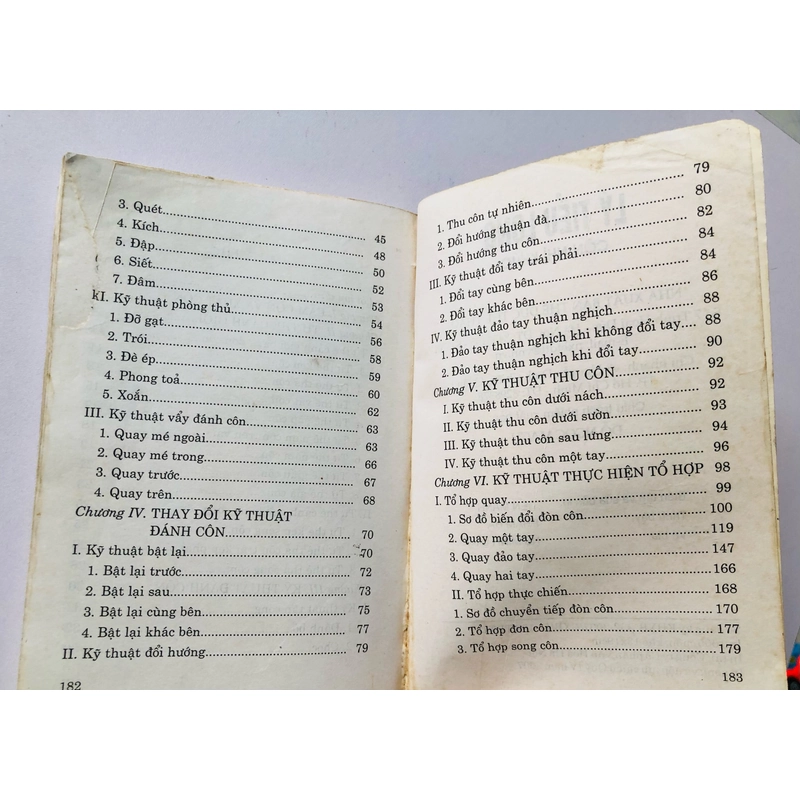 3. Quét.......... 45
4. Kích.......... 48
5. Đập.......... 50
6. Siết.......... 52
7. Đâm.......... 53
XI. Kỹ thuật phòng thủ.......... 54
1. Đỡ gạt.......... 56
2. Trói.......... 58
3. Đè ép.......... 59
4. Phong toả.......... 60
5. Xoắn.......... 62
III. Kỹ thuật vẩy đánh côn.......... 63
1. Quay mé ngoài.......... 63
2. Quay mé trong.......... 66
3. Quay trước.......... 67
4. Quay trên.......... 68
Chương IV. THAY ĐỔI KỸ THUẬT
ĐÁNH CÔN.......... 70
I. Kỹ thuật bật lại.......... 70
1. Bật lại trước.......... 72
2. Bật lại sau.......... 73
3. Bật lại cùng bên.......... 75
4. Bật lại khác bên.......... 77
II. Kỹ thuật đổi hướng.......... 79
182
1. Thu côn tự nhiên.......... 79
2. Đổi hướng thuận đà.......... 80
3. Đổi hướng thu côn.......... 82
III. Kỹ thuật đổi tay trái phải.......... 84
1. Đổi tay cùng bên.......... 84
2. Đổi tay khác bên.......... 86
IV. Kỹ thuật đảo tay thuận nghịch.......... 88
1. Đảo tay thuận nghịch khi không đổi tay.......... 88
2. Đảo tay thuận nghịch khi đổi tay.......... 90
Chương V. KỸ THUẬT THU CÔN.......... 92
I. Kỹ thuật thu côn dưới nách.......... 92
II. Kỹ thuật thu côn dưới sườn.......... 93
III. Kỹ thuật thu côn sau lưng.......... 94
IV. Kỹ thuật thu côn một tay.......... 96
Chương VI. KỸ THUẬT THỰC HIỆN TỔ HỢP 98
I. Tổ hợp quay.......... 99
1. Sơ đồ biến đổi đòn côn.......... 100
2. Quay một tay.......... 119
3. Quay đảo tay.......... 147
4. Quay hai tay.......... 166
II. Tổ hợp thực chiến.......... 168
1. Sơ đồ chuyển tiếp đòn côn.......... 170
2. Tổ hợp đơn côn.......... 177
3. Tổ hợp song côn.......... 179
183